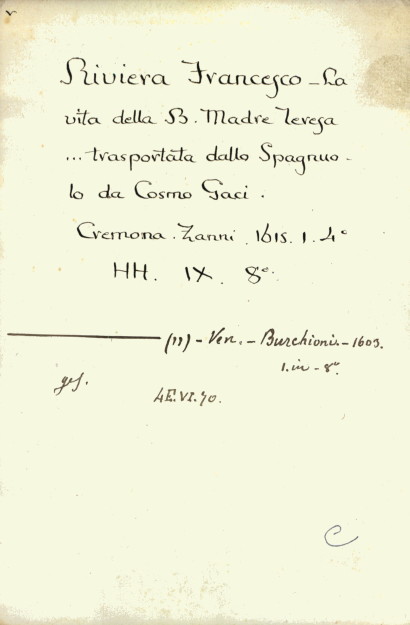 Riviera Francesco - La
vita della B. Madre Teresa
... trasportata dallo Spagnuo-
lo da Cosmo Gaci.
Cremona. Zanni. 1615. 1. 4°
HH. IX. 8°.
(11) - Ven. - Burchioni. - 1603.
1. in - 8°.
ges.
4E.VI.70.
C